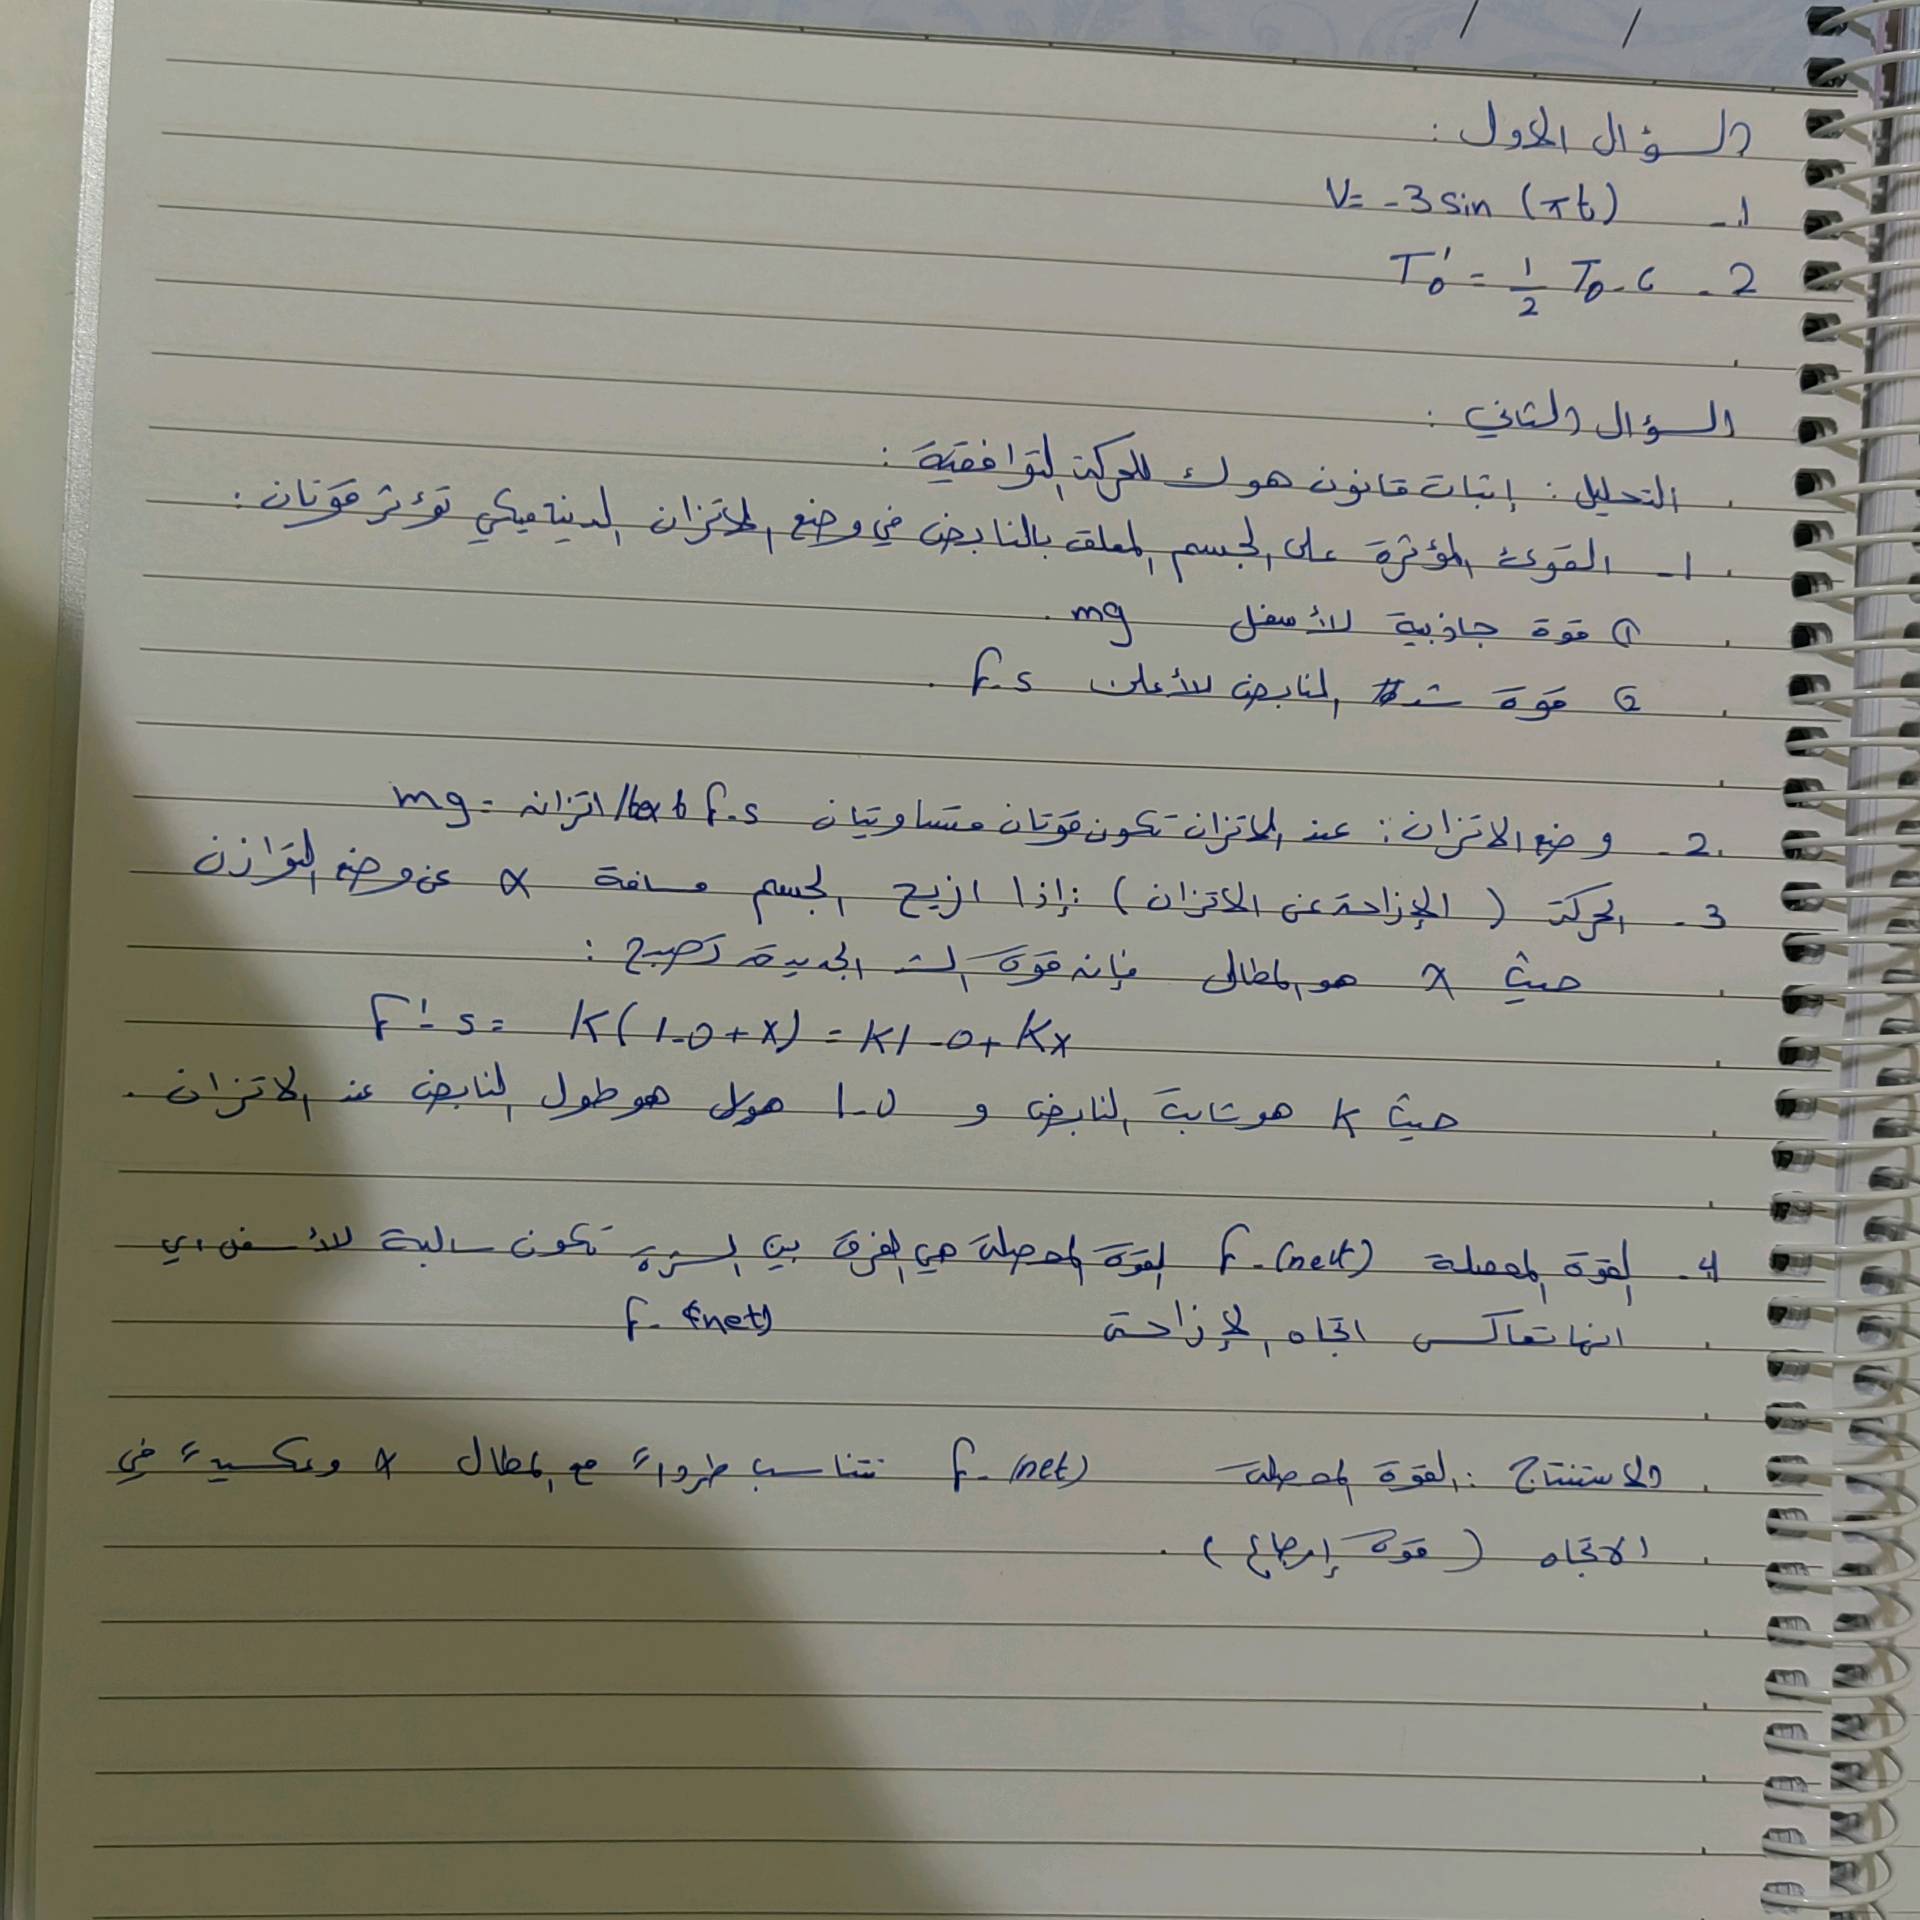 السؤال الاول :
1- V= -3 sin (πt)
2- T₀' = 1/2 T₀ - c
السؤال الثاني :
التحليل : إثبات قانون هوك للحركة التوافقية :
1- القوى المؤثرة على الجسم المعلق بالنابض في وضع الاتزان الديناميكي تؤثر قوتان :
① قوة جاذبية للأسفل mg .
② قوة شد النابض للأعلى F-s .
2- وضع الاتزان : عند الاتزان تكون قوتان متساويتان F-s اتزانه/text = mg
3- الحركة ( الإزاحة عن الاتزان ) : إذا ازيح الجسم مسافة x عن وضع التوازن
حيث x هو المطال فإنه قوة الشد الجديدة تصبح :
F'-s = K(1-0+x) = K1-0+Kx
حيث K هو ثابت النابض و 1-0 هو طول النابض عند الاتزان .
4- القوة المحصلة F-(net) القوة المحصلة هي الفرق بين تكون سالبة للأسفل اي
انها تعاكس اتجاه الإزاحة F-(net)
الاستنتاج : القوة المحصلة F-(net) تتناسب طرداً مع المطال x وعكسيا في
الاتجاه ( قوة إرجاع ) .